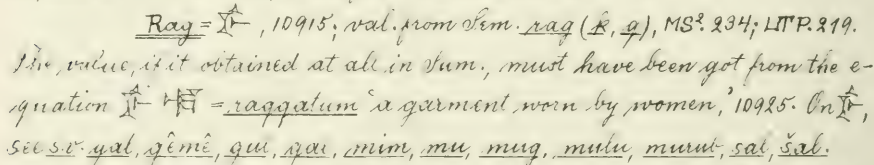 Rag = 𒊩, 10915; val. from Sem. rag (k, q), MS². 234; LTP. 219.
The value, if it obtained at all in Sum., must have been got from the e-
quation 𒊩 = raggatum 'a garment worn by women,' 10925. On 𒊩,
see s.v. gal, gêmê, gul, gai, mim, mu, mug, mulu, murub, sal, šal.